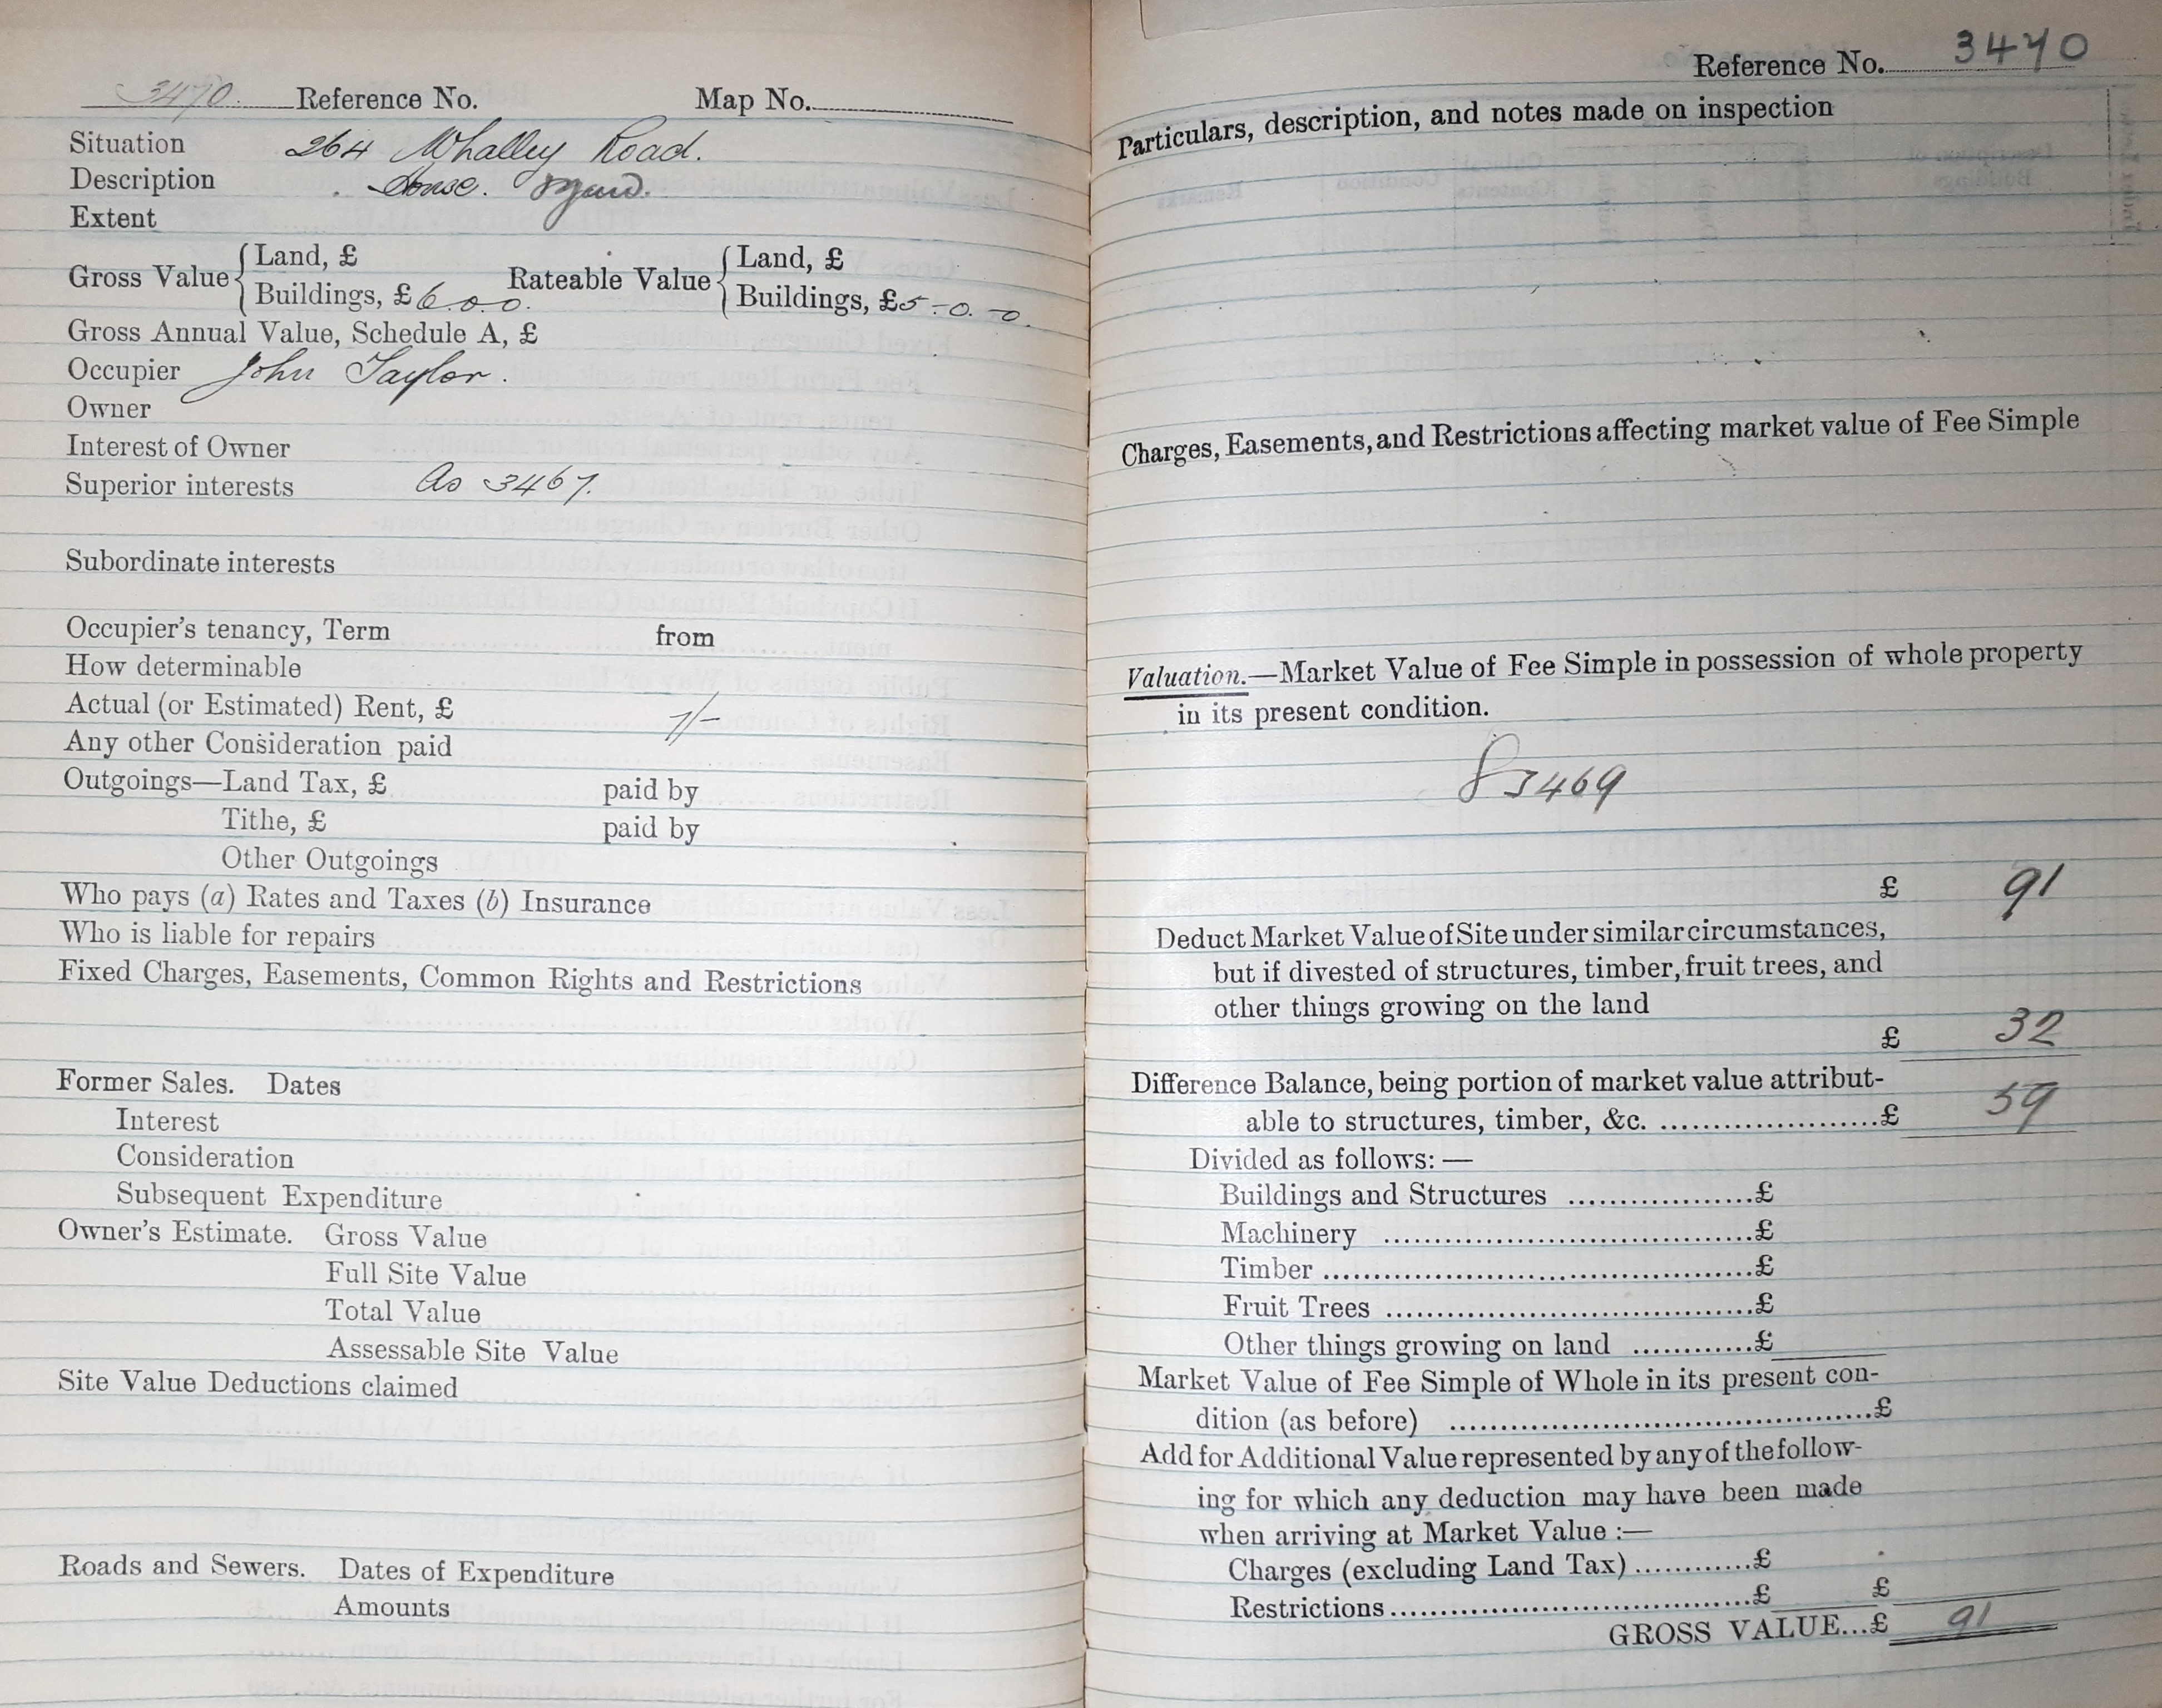 3470 Reference No. Map No.
Situation 264 Whalley Road.
Description House.
Extent
Gross Value { Land, £
Buildings, £ 6.0.0.
Rateable Value { Land, £
Buildings, £ 5-0.-0.
Gross Annual Value, Schedule A, £
Occupier John Taylor.
Owner
Interest of Owner
Superior interests As 3467.
Subordinate interests
Occupier's tenancy, Term from
How determinable
Actual (or Estimated) Rent, £
Any other Consideration paid
Outgoings—Land Tax, £ paid by
Tithe, £ paid by
Other Outgoings
Who pays (a) Rates and Taxes (b) Insurance
Who is liable for repairs
Fixed Charges, Easements, Common Rights and Restrictions
Former Sales. Dates
Interest
Consideration
Subsequent Expenditure
Owner's Estimate. Gross Value
Full Site Value
Total Value
Assessable Site Value
Site Value Deductions claimed
Roads and Sewers. Dates of Expenditure
Amounts
Reference No. 3470
Particulars, description, and notes made on inspection
Charges, Easements, and Restrictions affecting market value of Fee Simple
Valuation.—Market Value of Fee Simple in possession of whole property
in its present condition.
3469
£ 91
Deduct Market Value of Site under similar circumstances,
but if divested of structures, timber, fruit trees, and
other things growing on the land
£ 32
Difference Balance, being portion of market value attribut-
able to structures, timber, &c. ......................£ 59
Divided as follows:—
Buildings and Structures ..................£
Machinery ......................................£
Timber ............................................£
Fruit Trees ......................................£
Other things growing on land ............£
Market Value of Fee Simple of Whole in its present con-
dition (as before) ............................................£
Add for Additional Value represented by any of the follow-
ing for which any deduction may have been made
when arriving at Market Value :—
Charges (excluding Land Tax) ............£
Restrictions ......................................£ £
GROSS VALUE...£ 91